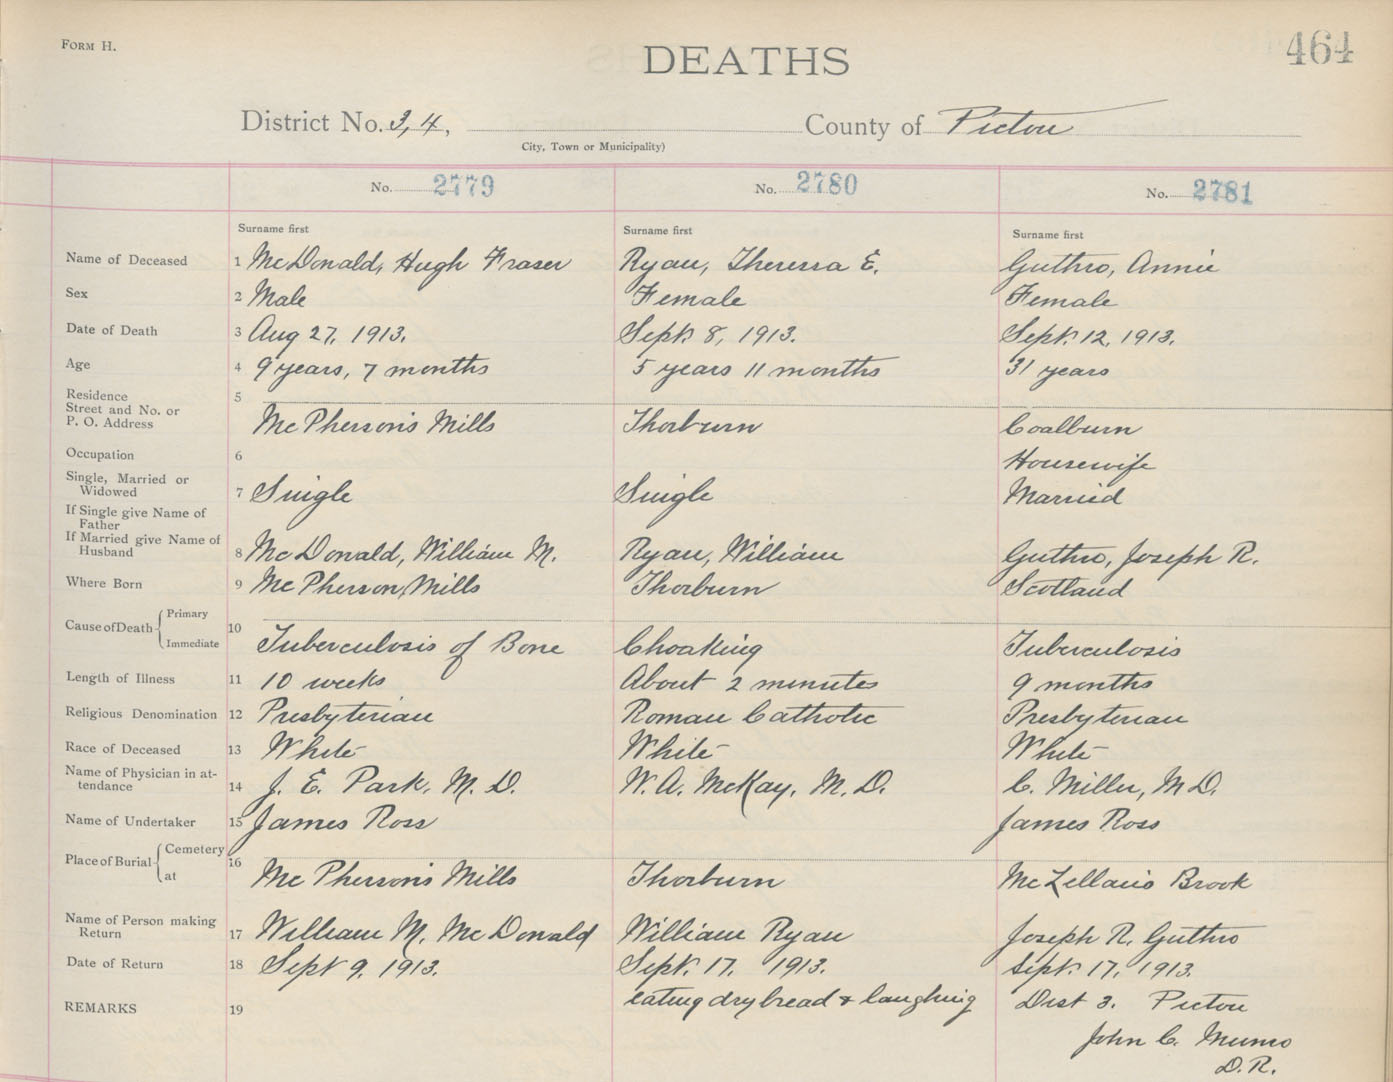 FORM H.
DEATHS
464
District No. 3, 4, County of Pictou
City, Town or Municipality)
No. 2779 No. 2780 No. 2781
Surname first Surname first Surname first
Name of Deceased 1 McDonald, Hugh Fraser Ryan, Theressa E. Guthro, Annie
Sex 2 Male Female Female
Date of Death 3 Aug 27, 1913. Sept. 8, 1913. Sept. 12, 1913.
Age 4 9 years, 7 months 5 years 11 months 31 years
Residence 5
Street and No. or
P. O. Address McPherson's Mills Thorburn Coalburn
Occupation 6 Housewife
Single, Married or
Widowed 7 Single Single Married
If Single give Name of
Father
If Married give Name of
Husband 8 McDonald, William M. Ryan, William Guthro, Joseph R.
Where Born 9 McPherson Mills Thorburn Scotland
Cause of Death Primary 10
Immediate Tuberculosis of Bone Choaking Tuberculosis
Length of Illness 11 10 weeks About 2 minutes 9 months
Religious Denomination 12 Presbyterian Roman Catholic Presbyterian
Race of Deceased 13 White White White
Name of Physician in at-
tendance 14 J. E. Park, M. D. W. A. McKay, M. D. C. Miller, M D.
Name of Undertaker 15 James Ross James Ross
Place of Burial Cemetery 16
at McPherson's Mills Thorburn McLellan's Brook
Name of Person making
Return 17 William M. McDonald William Ryan Joseph R. Guthro
Date of Return 18 Sept 9, 1913. Sept. 17, 1913. Sept. 17, 1913.
REMARKS 19 eating dry bread & laughing Dist 3. Pictou
John C. Munro
D. R.